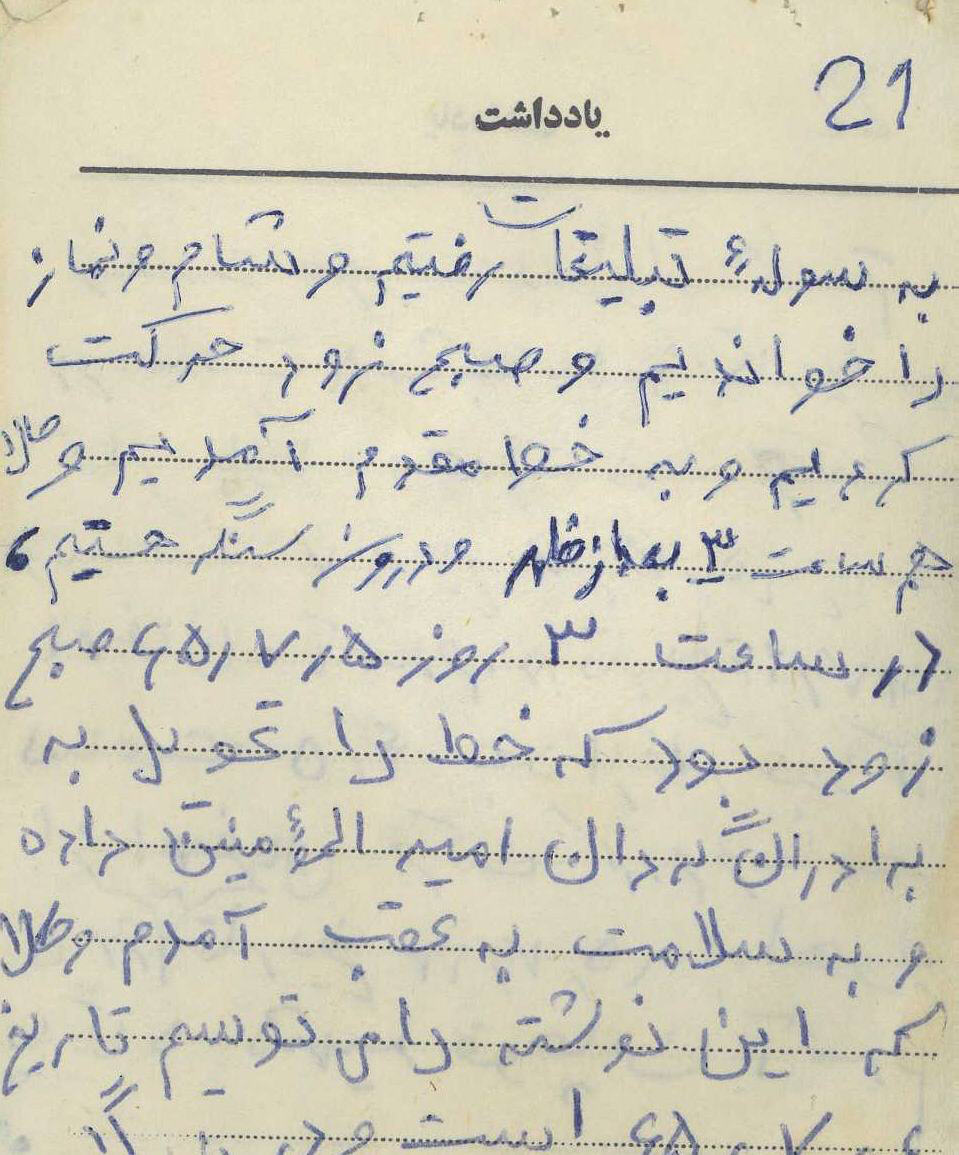 21
یادداشت
به سولهٔ تبلیغات رفتیم و شام و نماز
را خواندیم و صبح زود حرکت
کردیم و به خط مقدم آمدیم و حالا
ساعت ۳ بعدازظهر و در سنگر هستیم
در ساعت ۳ روز ۶۵٫۷٫۵ صبح
زود بود که خط را تحویل به
برادران گردان امیر المؤمنین داده
و به سلامت به عقب آمدم و حالا
که این نوشته را می نویسم تاریخ
۶۵٫۷ است و در